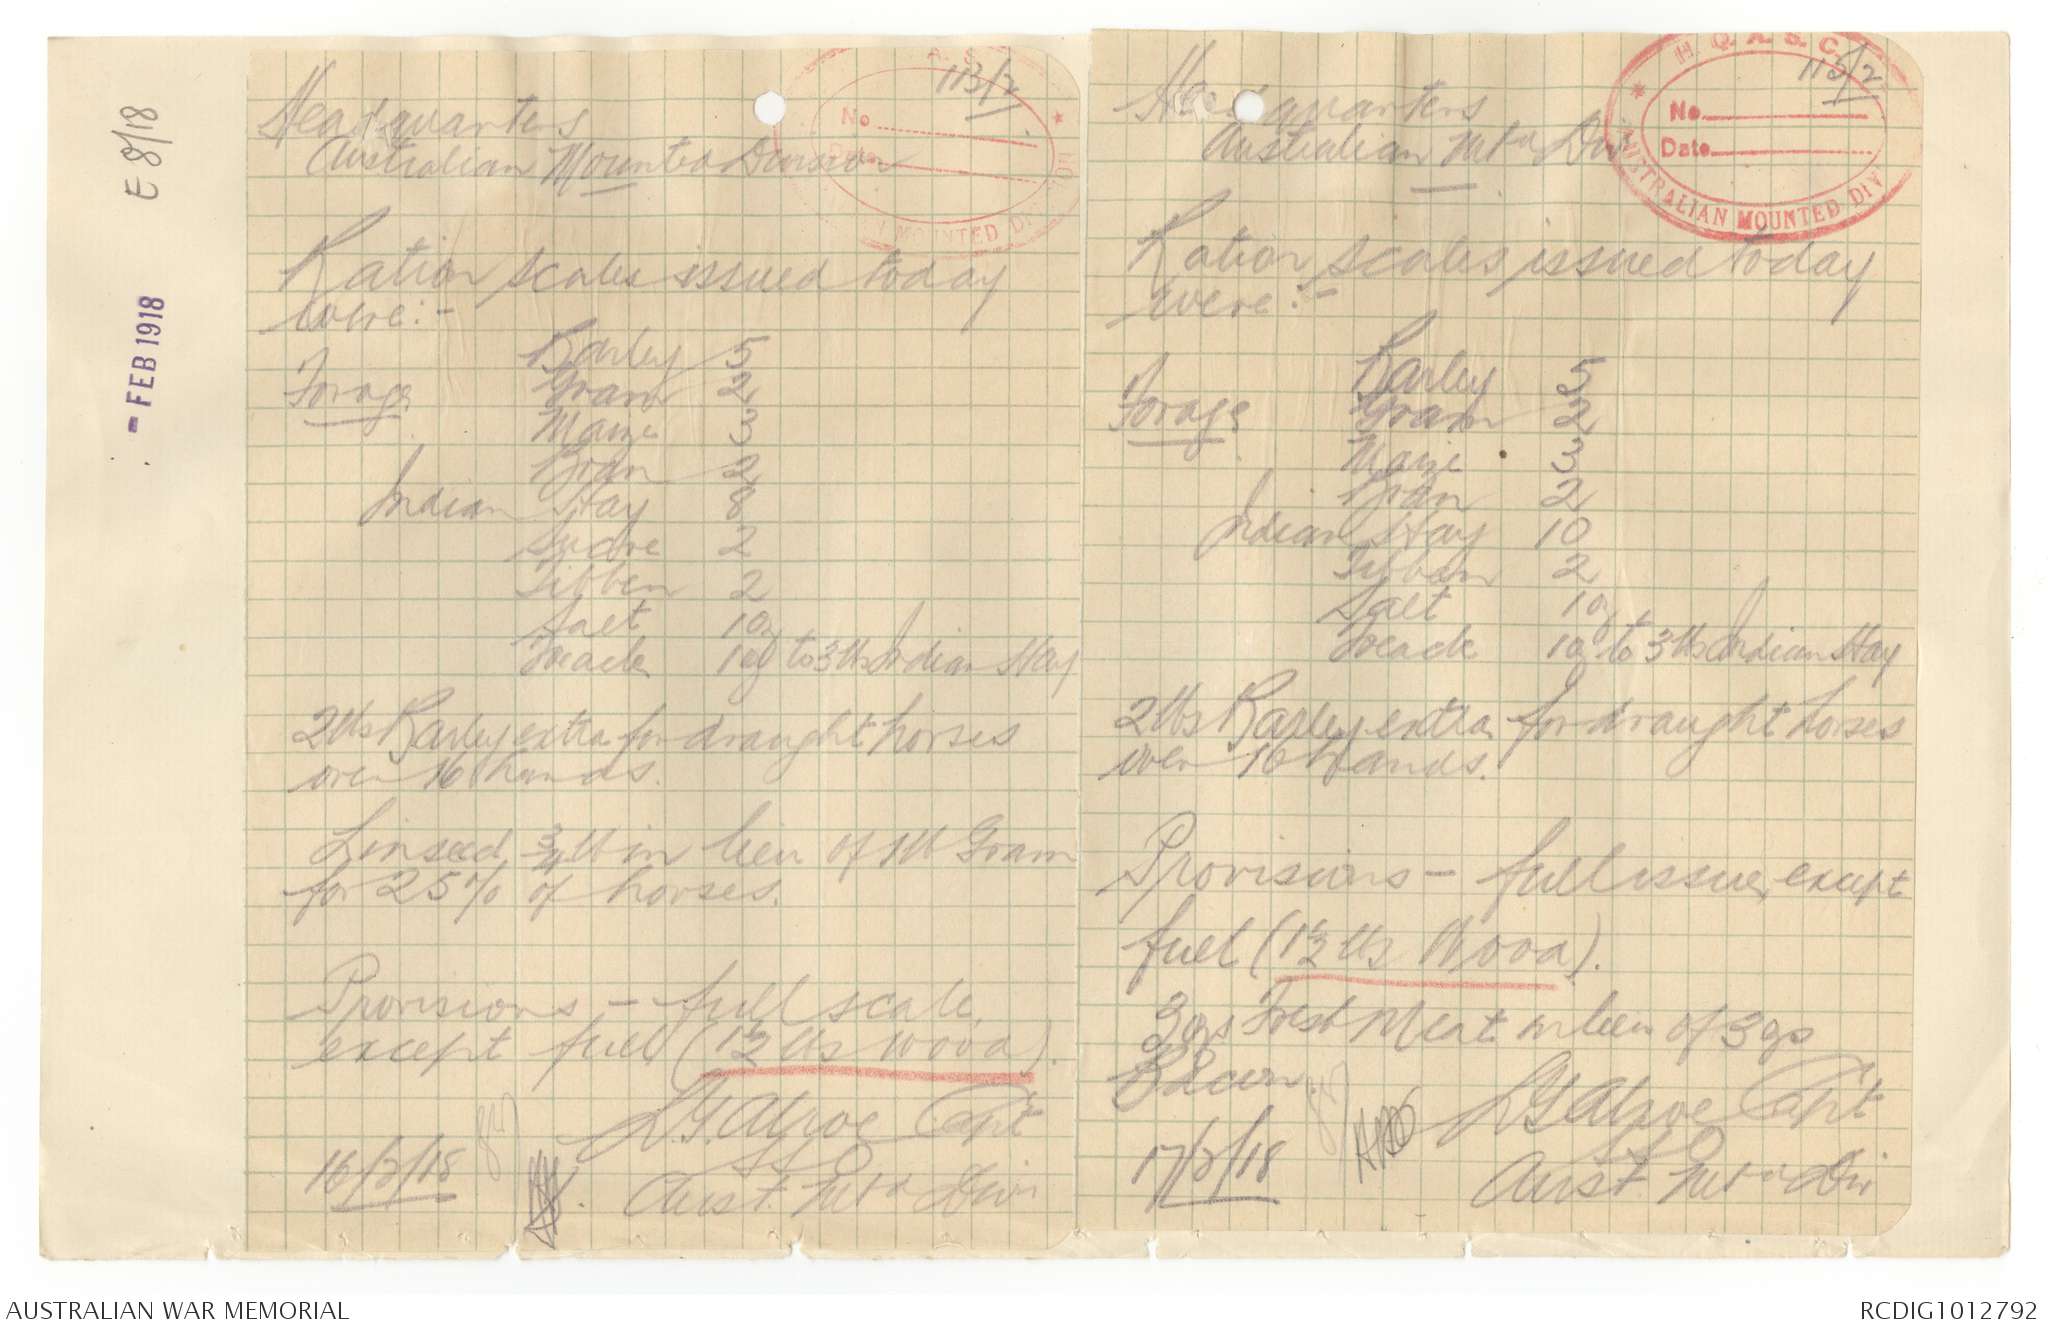 E 8/18
- FEB 1918
113/2
Headquarters
Australian Mounted Division
No
Date
MOUNTED DIV
Ration scales issued today
were:-
Forage
Barley 5
Gram 2
Maize 3
Bran 2
Indian Hay 8
2
Tibben 2
Salt 1oz
Treacle 1oz to 3 lbs Indian Hay
2 lbs Barley extra for draught horses
over 16 hands.
Linseed 3/4 lb in lieu of 1 lb Gram
for 25% of horses.
Provisions - full scale,
except fuel (1½ lbs wood).
Capt
16/2/18
Aust. Mtd Divn
H.Q. A.S.C.
113/2
No
Date
AUSTRALIAN MOUNTED DIV
Headquarters
Australian Mtd Div
Ration scales issued today
were:-
Forage
Barley 5
Gram 2
Maize 3
Bran 2
Indian Hay 10
Tibban 2
Salt 1oz
Treacle 1oz to 3 lbs Indian Hay
2 lbs Barley extra for draught horses
over 16 hands.
Provisions - full issue, except
fuel (1½ lbs Wood).
3 ozs Fresh Meat in lieu of 3 ozs
Bacon.
Capt
17/2/18
Aust Mtd Div
AUSTRALIAN WAR MEMORIAL
RCDIG1012792